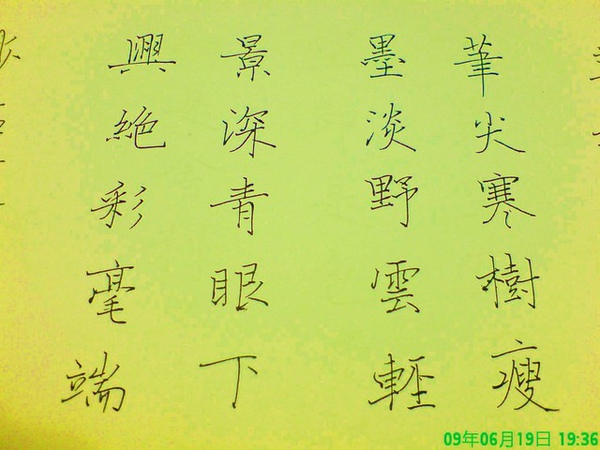 筆尖寒樹瘦
墨淡野雲輕
景深青眼下
興絕彩毫端
09年06月19日 19:36